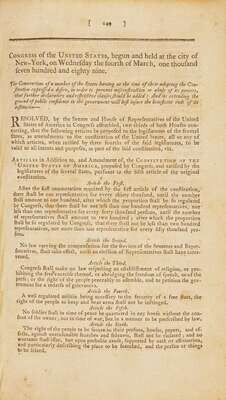 [ 149 ]
CONGRESS of the UNITED STATES, begun and held at the city of
New-York, on Wednesday the fourth of March, one thousand
seven hundred and eighty nine.
The Conventions of a number of the States having at the time of their adopting the Con-
stitution expressed a desire, in order to prevent misconstruction or abuse of its powers,
that further declaratory and restrictive clauses should be added: And as extending the
ground of public confidence in the government will best insure the beneficent ends of its
institution—
RESOLVED, by the Senate and House of Representatives of the United
States of America in Congress assembled, two thirds of both Houses concur-
ring, that the following articles be proposed to the legislatures of the several
states, as amendments to the constitution of the United States, all or any of
which articles, when ratified by three fourths of the said legislatures, to be
valid to all intents and purposes, as part of the said constitution, viz.
ARTICLES in Addition to, and Amendment of, the CONSTITUTION of the
UNITED STATES of AMERICA, proposed by Congress, and ratified by the
legislatures of the several states, pursuant to the fifth article of the original
constitution.
Article the First.
After the first enumeration required by the first article of the constitution,
there shall be one representative for every thirty thousand, until the number
shall amount to one hundred, after which the proportion shall be so regulated
by Congress, that there shall be not less than one hundred representatives, nor
less than one representative for every forty thousand persons, until the number
of representatives shall amount to two hundred; after which the proportion
shall be so regulated by Congress, that there shall not be less than two hundred
representatives, nor more than one representative for every fifty thousand per-
sons.
Article the Second.
No law varying the compensation for the services of the Senators and Repre-
sentatives, shall take effect, until an election of Representatives shall have inter-
vened.
Article the Third.
Congress shall make no law respecting an establishment of religion, or pro-
hibiting the free exercise thereof, or abridging the freedom of speech, or of the
press; or the right of the people peaceably to assemble, and to petition the go-
vernment for a redress of grievances.
Article the Fourth.
A well regulated militia being necessary to the security of a free state, the
right of the people to keep and bear arms shall not be infringed.
Article the Fifth.
No soldier shall in time of peace be quartered in any house without the con-
sent of the owner, nor in time of war, but in a manner to be prescribed by law.
Article the Sixth.
The right of the people to be secure in their persons, houses, papers, and ef-
fects, against unreasonable searches and seizures, shall not be violated; and no
warrants shall issue, but upon probable cause, supported by oath or affirmation,
and particularly describing the place to be searched, and the person or things
to be seized.